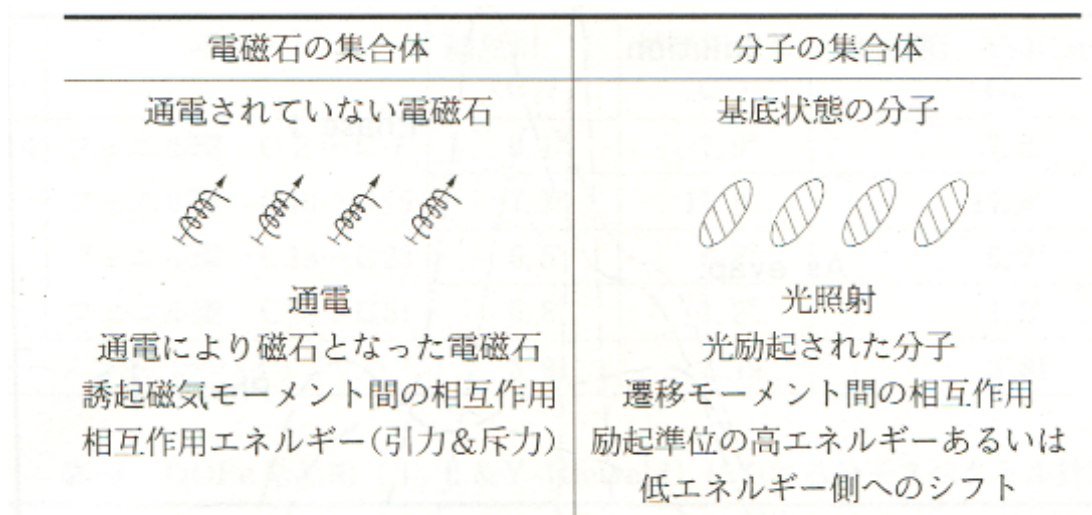 電磁石の集合体
分子の集合体
通電されていない電磁石
基底状態の分子
通電
光照射
通電により磁石となった電磁石
光励起された分子
誘起磁気モーメント間の相互作用
遷移モーメント間の相互作用
相互作用エネルギー(引力&斥力)
励起準位の高エネルギーあるいは
低エネルギー側へのシフト